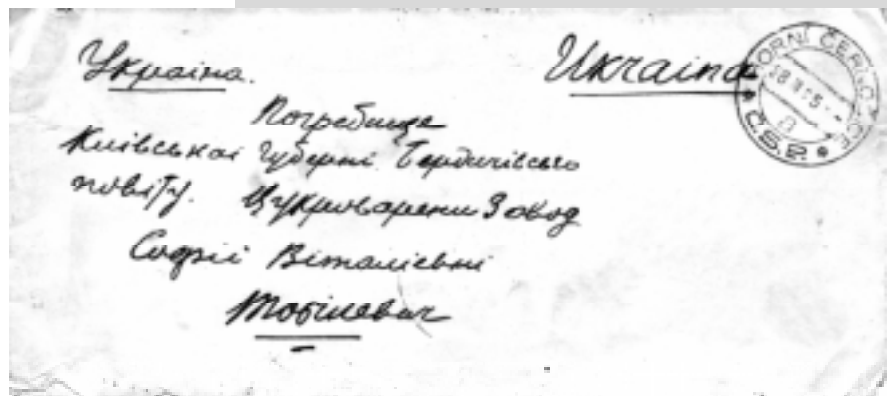 Україна. Ukraina
Погребище
Київської Губерні Бердичівсько
повіту. Цукроварени Завод
Софії Віталієвні
Тобілевич
HORNÍ ČERNOŠICE
Č.S.R.